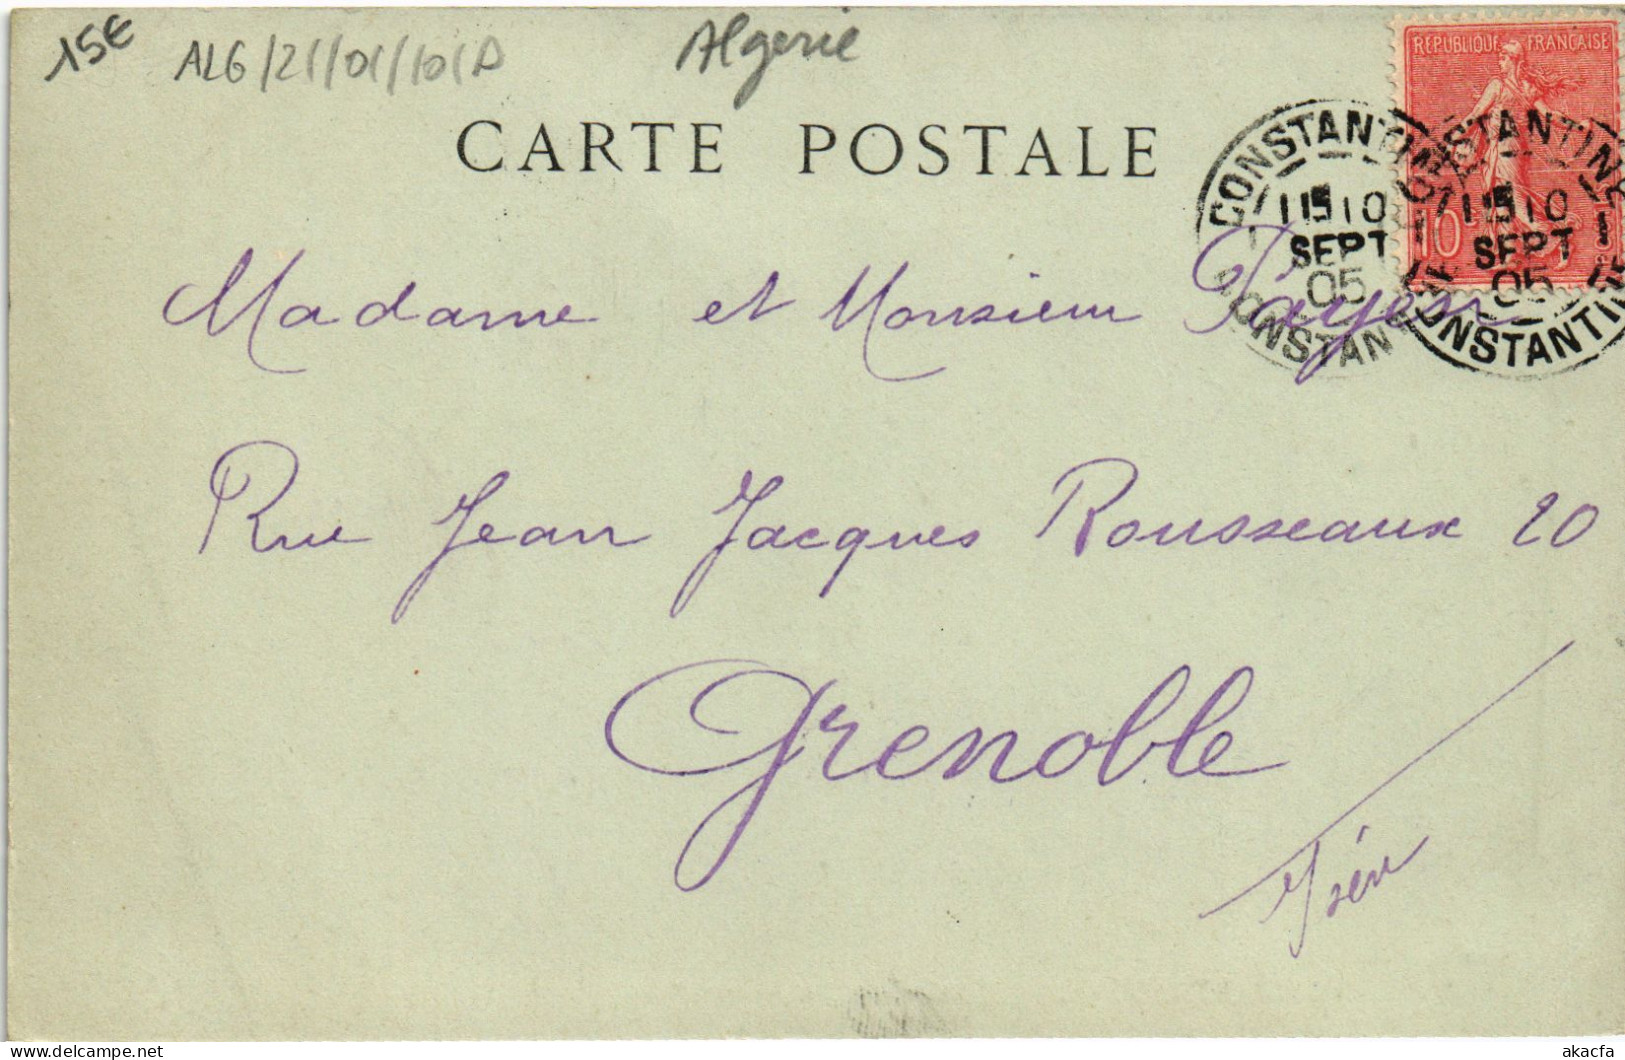 15€
ALG/21/01/10/D
Algerie
CARTE POSTALE
REPUBLIQUE FRANÇAISE
10
CONSTANTINE
10
SEPT
05
CONSTANTINE
CONSTANTINE
10
SEPT
05
CONSTANTINE
Madame et Monsieur Payen
Rue Jean Jacques Rousseaux 20
Grenoble
Isère
akacfa